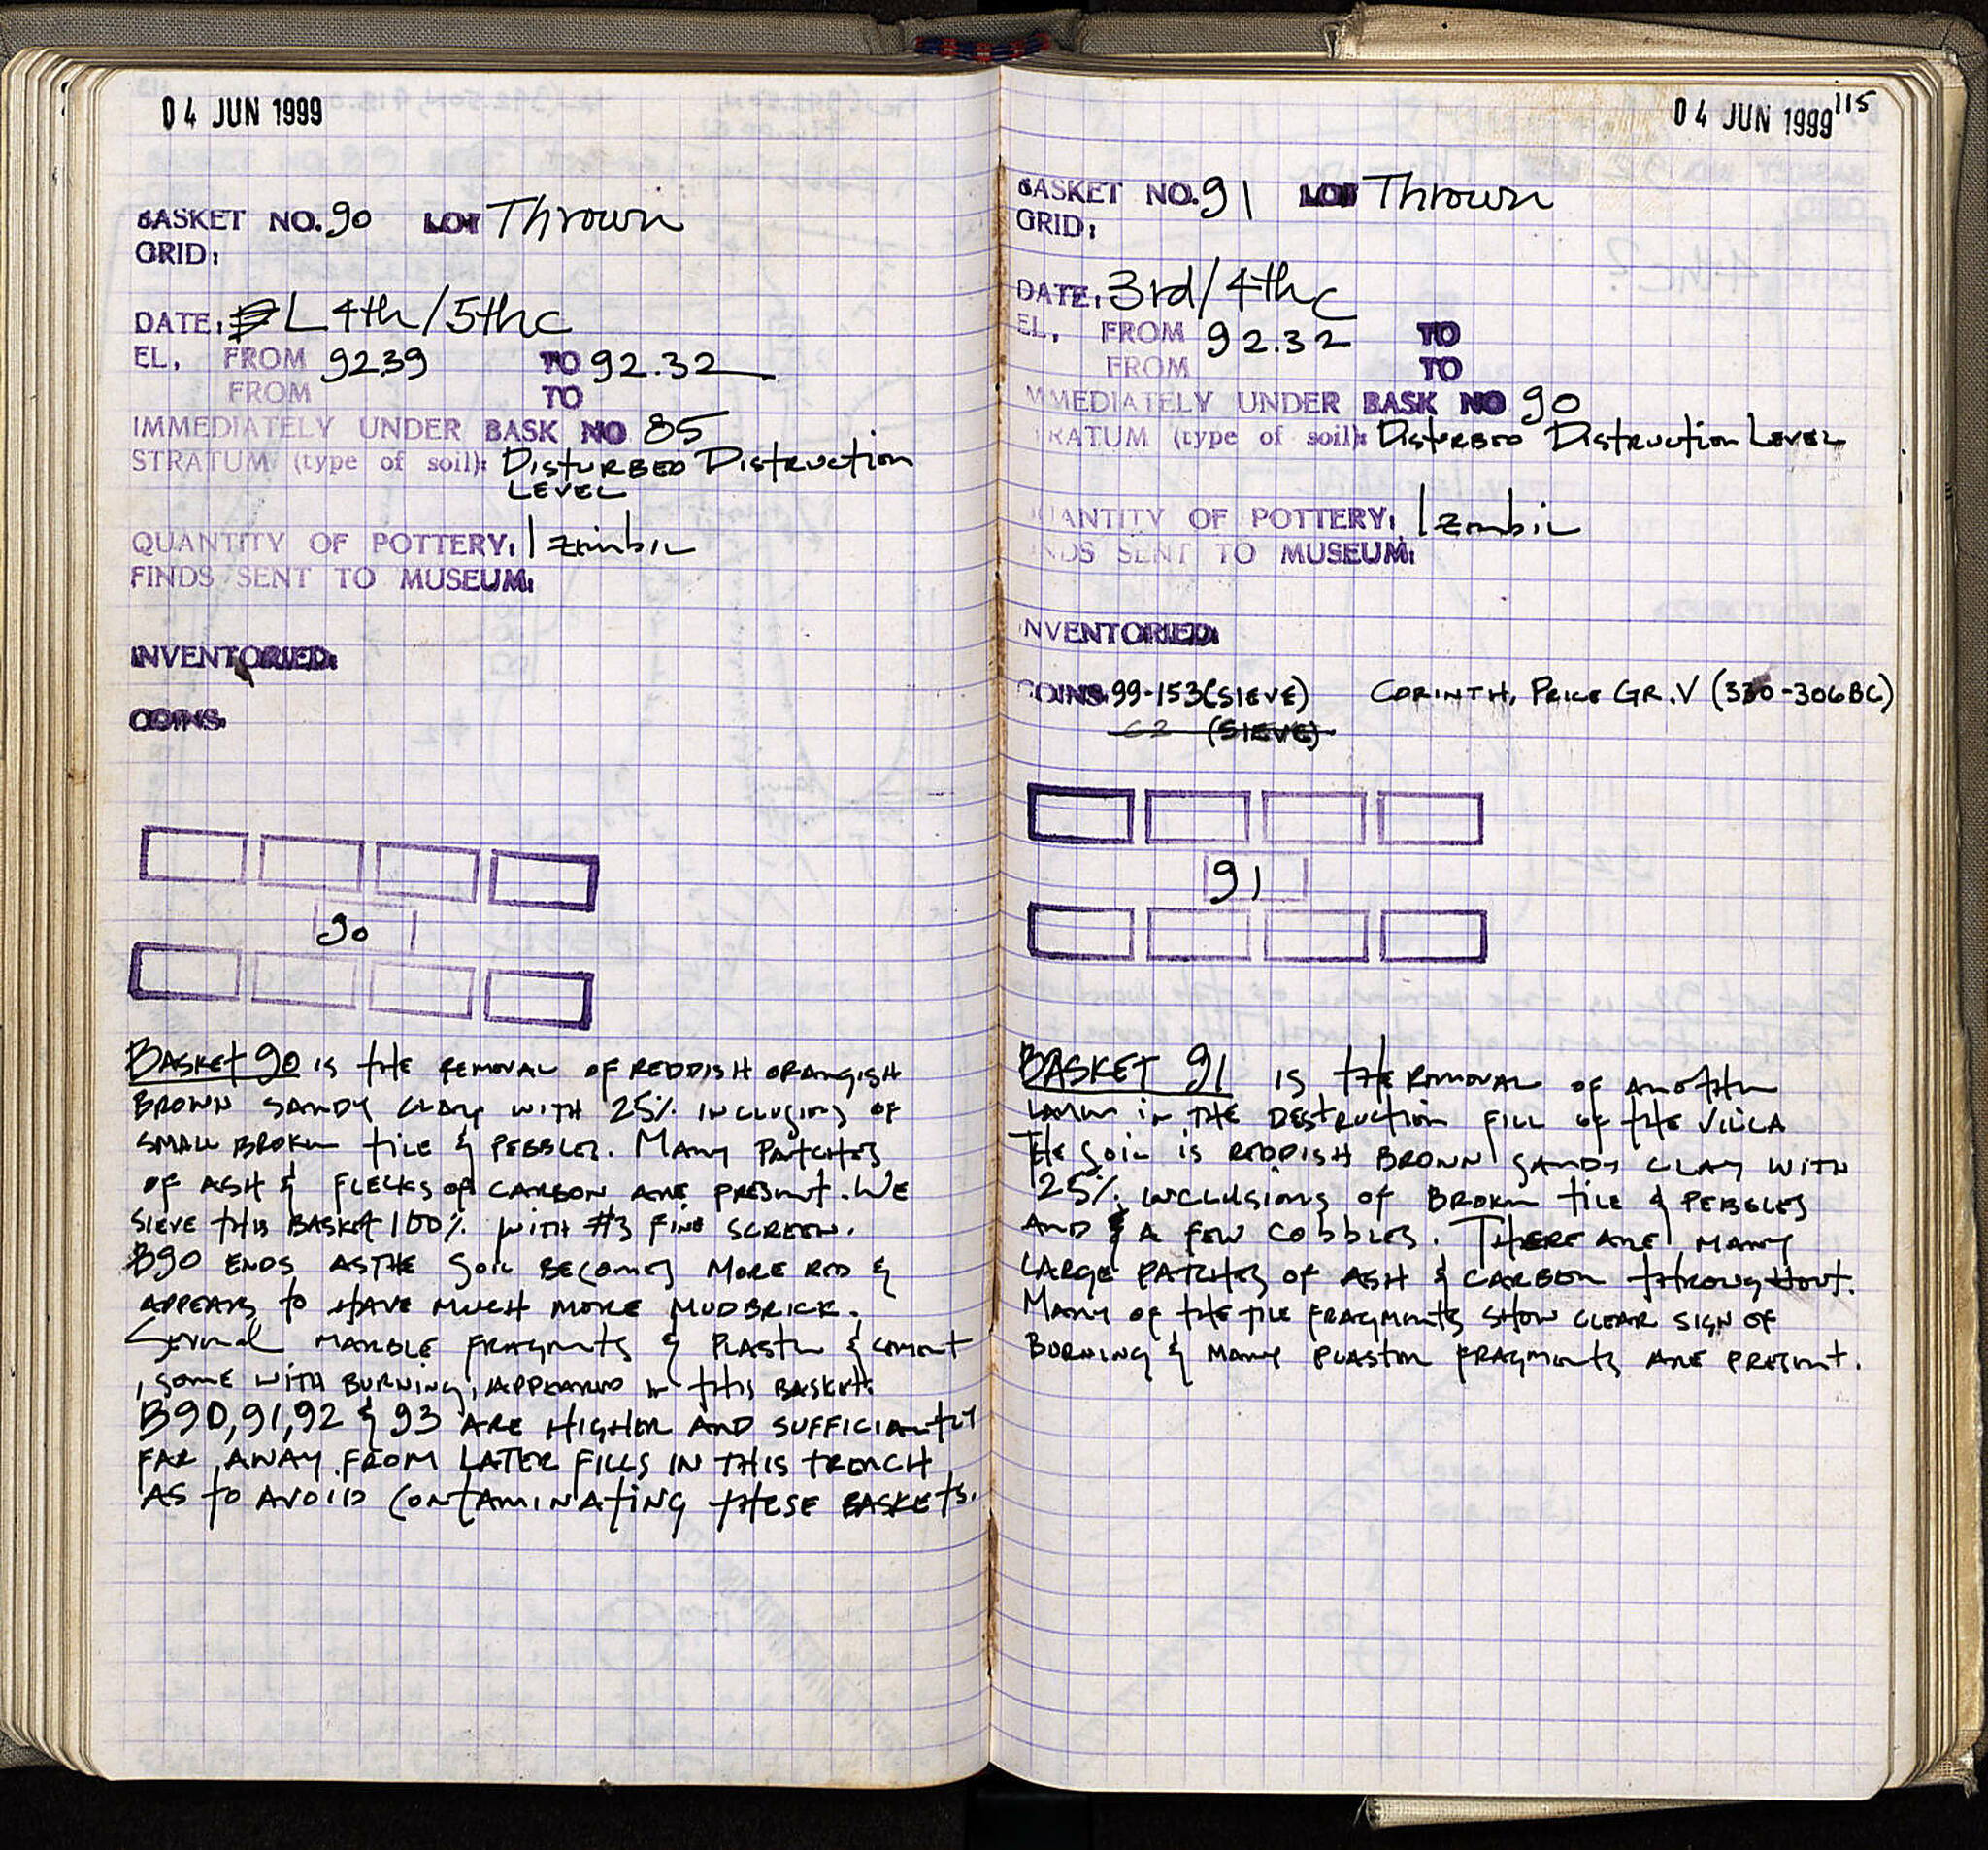 04 JUN 1999
BASKET NO. 90 LOT Thrown
GRID:
DATE: L 4th/5thc
EL. FROM 92.39 TO 92.32
FROM TO
IMMEDIATELY UNDER BASK NO 85
STRATUM (type of soil): Disturbed Distruction
LEVEL
QUANTITY OF POTTERY: 1 zimbil
FINDS SENT TO MUSEUM:
INVENTORIED:
COINS:
90
BASKET 90 is the removal of reddish orangish
brown sandy clay with 25% inclusions of
small broken tile & pebbles. Many patches
of ash & flecks of carbon are present. We
sieve this basket 100% with #3 fine screen.
B90 ends as the soil becomes more red &
appears to have much more mudbrick.
Several marble fragments & plaster & cement
, some with burning, appeared in this basket.
B90, 91, 92 & 93 are higher and sufficiently
far away from later fills in this trench
as to avoid contaminating these baskets.
115
04 JUN 1999
BASKET NO. 91 LOT Thrown
GRID:
DATE: 3rd/4thc
EL. FROM 92.32 TO
FROM TO
MMEDIATELY UNDER BASK NO 90
RATUM (type of soil): Disturbed Distruction Level
UANTITY OF POTTERY: 1 zembil
NDS SENT TO MUSEUM:
NVENTORIED:
COINS: 99-153 (SIEVE) CORINTH, PRICE GR. V (330-306BC)
62 (SIEVE)
91
BASKET 91 is the removal of another
layer in the destruction fill of the villa
The soil is reddish brown sandy clay with
25% inclusions of broken tile & pebbles
and & a few cobbles. There are many
large patches of ash & carbon throughout.
Many of the tile fragments show clear sign of
burning & many plaster fragments are present.